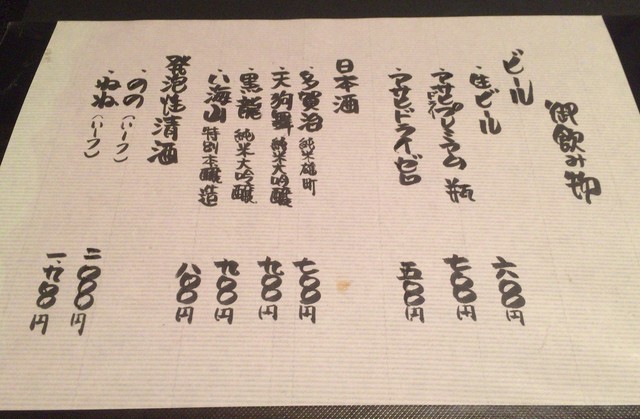 御飲み物
ビール
・生ビール 六〇〇円
・アサヒプレミアム 瓶 七〇〇円
・アサヒドライゼロ 五〇〇円
日本酒
・多賀治 純米雄町 七〇〇円
・天狗舞 純米大吟醸 九〇〇円
・黒龍 純米大吟醸 九〇〇円
・八海山 特別本醸造 八〇〇円
発泡性清酒
・のの（ハーフ） 二〇〇〇円
・ねね（ハーフ） 一、九〇〇円